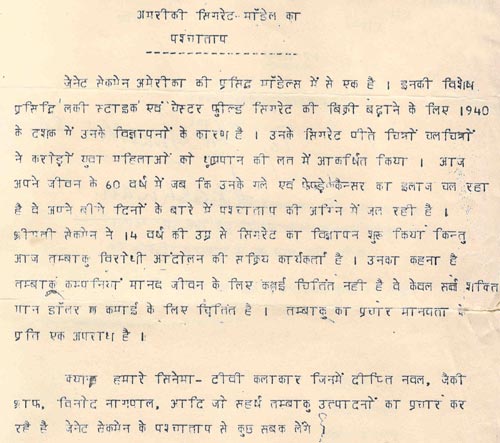 अमरीकी सिगरेट-मॉडेल का
पश्चाताप
जेनेट सेकमेन अमेरीका की प्रसिद्ध मॉडेल्स में से एक है । इनकी विशेष
प्रसिद्धि लकी स्टाइक एवं चेस्टर फील्ड सिगरेट की बिक्री बढ़ाने के लिए 1940
के दशक में उनके विज्ञापनों के कारण है । उनके सिगरेट पीते चित्रों चलचित्रों
ने करोड़ों युवा महिलाओं को धूम्रपान की लत में आकर्षित किया । आज
अपने जीवन के 60 वर्ष में जब कि उनके गले एवं कैन्सर का इलाज चल रहा
है वे अपने बीते दिनों के बारे में पश्चाताप की अग्नि में जल रही है ।
श्रीमती सेकमेन ने 14 वर्ष की उम्र से सिगरेट का विज्ञापन शुरू किया किन्तु
आज तम्बाकू विरोधी आंदोलन की सक्रिय कार्यकर्ता है । उनका कहना है
तम्बाकू कम्पनियां मानव जीवन के लिए कतई चिंतित नहीं है वे केवल सर्व शक्ति
मान डॉलर कमाई के लिए चिंतित है । तम्बाकू का प्रचार मानवता के
प्रति एक अपराध है ।
क्या हमारे सिनेमा- टीवी कलाकार जिनमें दीप्ति नवल, जैकी
श्राफ, विनोद नागपाल, आदि जो सहर्ष तम्बाकू उत्पादनों का प्रचार कर
रहे हैं जेनेट सेकमेन के पश्चाताप से कुछ सबक लेंगे ?